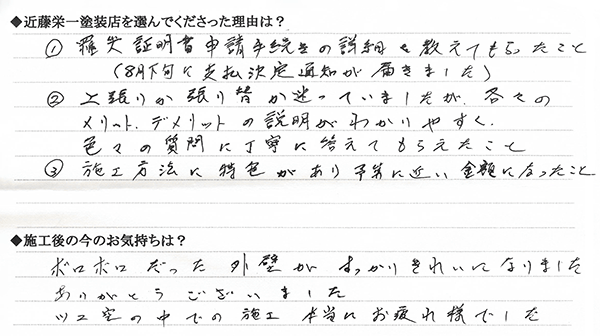 ◆近藤栄一塗装店を選んでくださった理由は？
① 羅災証明書申請手続きの詳細を教えてもらったこと
(8月下旬に支払決定通知が届きました)
② 上張りか張り替か迷っていましたが、各々の
メリット、デメリットの説明がわかりやすく、
色々の質問に丁寧に答えてもらえたこと
③ 施工方法に特色があり予算に近い金額になったこと
◆施工後の今のお気持ちは？
ボロボロだった外壁がすっかりきれいになりました
ありがとうございました
ツユ空の中での施工 本当にお疲れ様でした